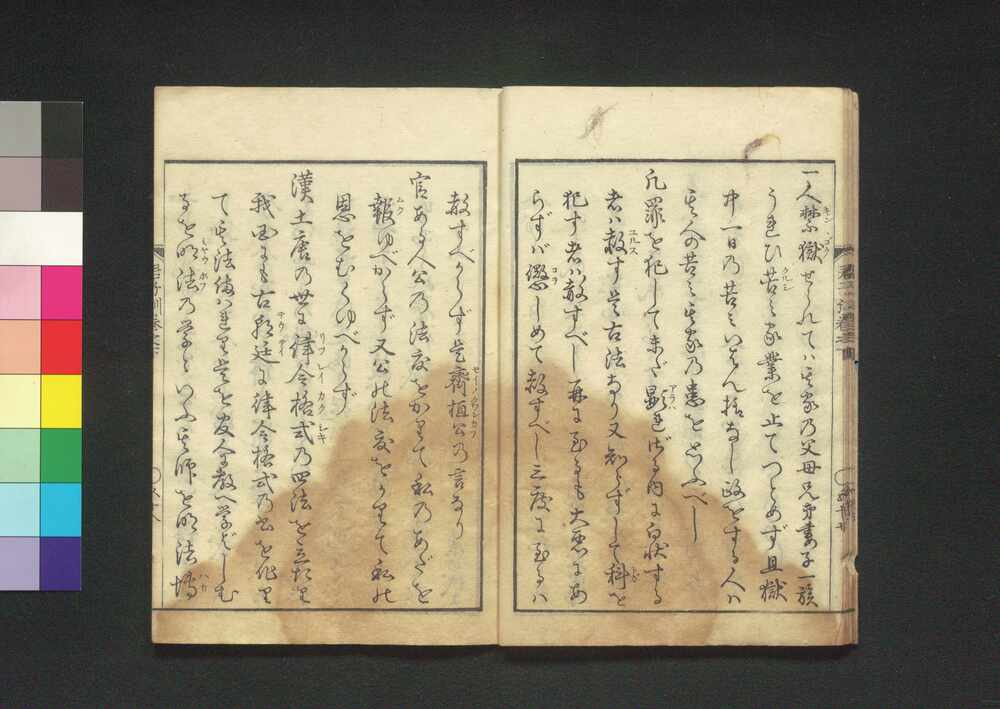 一人禁獄せられてハ其家乃父母兄弟妻子一族
うれひ苦ミ家業を止てつとめず且獄
中一日乃苦ミいはん括なし政をする人ハ
其人の苦ミ其家乃患をとふべし
凡罪を犯して未だ顕れざる内に白状する
者ハ赦す是古法なり又知らずして科を
犯す者ハ赦すべし再に至るも大悪にあ
らずバ懲しめて赦すべし三度に至るハ
赦すべからず是齊桓公乃言なり
官ある人公乃法度をかりて私乃あだを
報ゆべからず又公の法度をかりて私の
恩をむくゆべからず
漢土唐乃世に律令格式乃四法を立たり
我国にも古朝廷に律令格式乃書を作り
て其法備ハれり是を友人に教へ学ばしむ
るを明法乃学といふ其師を明法博